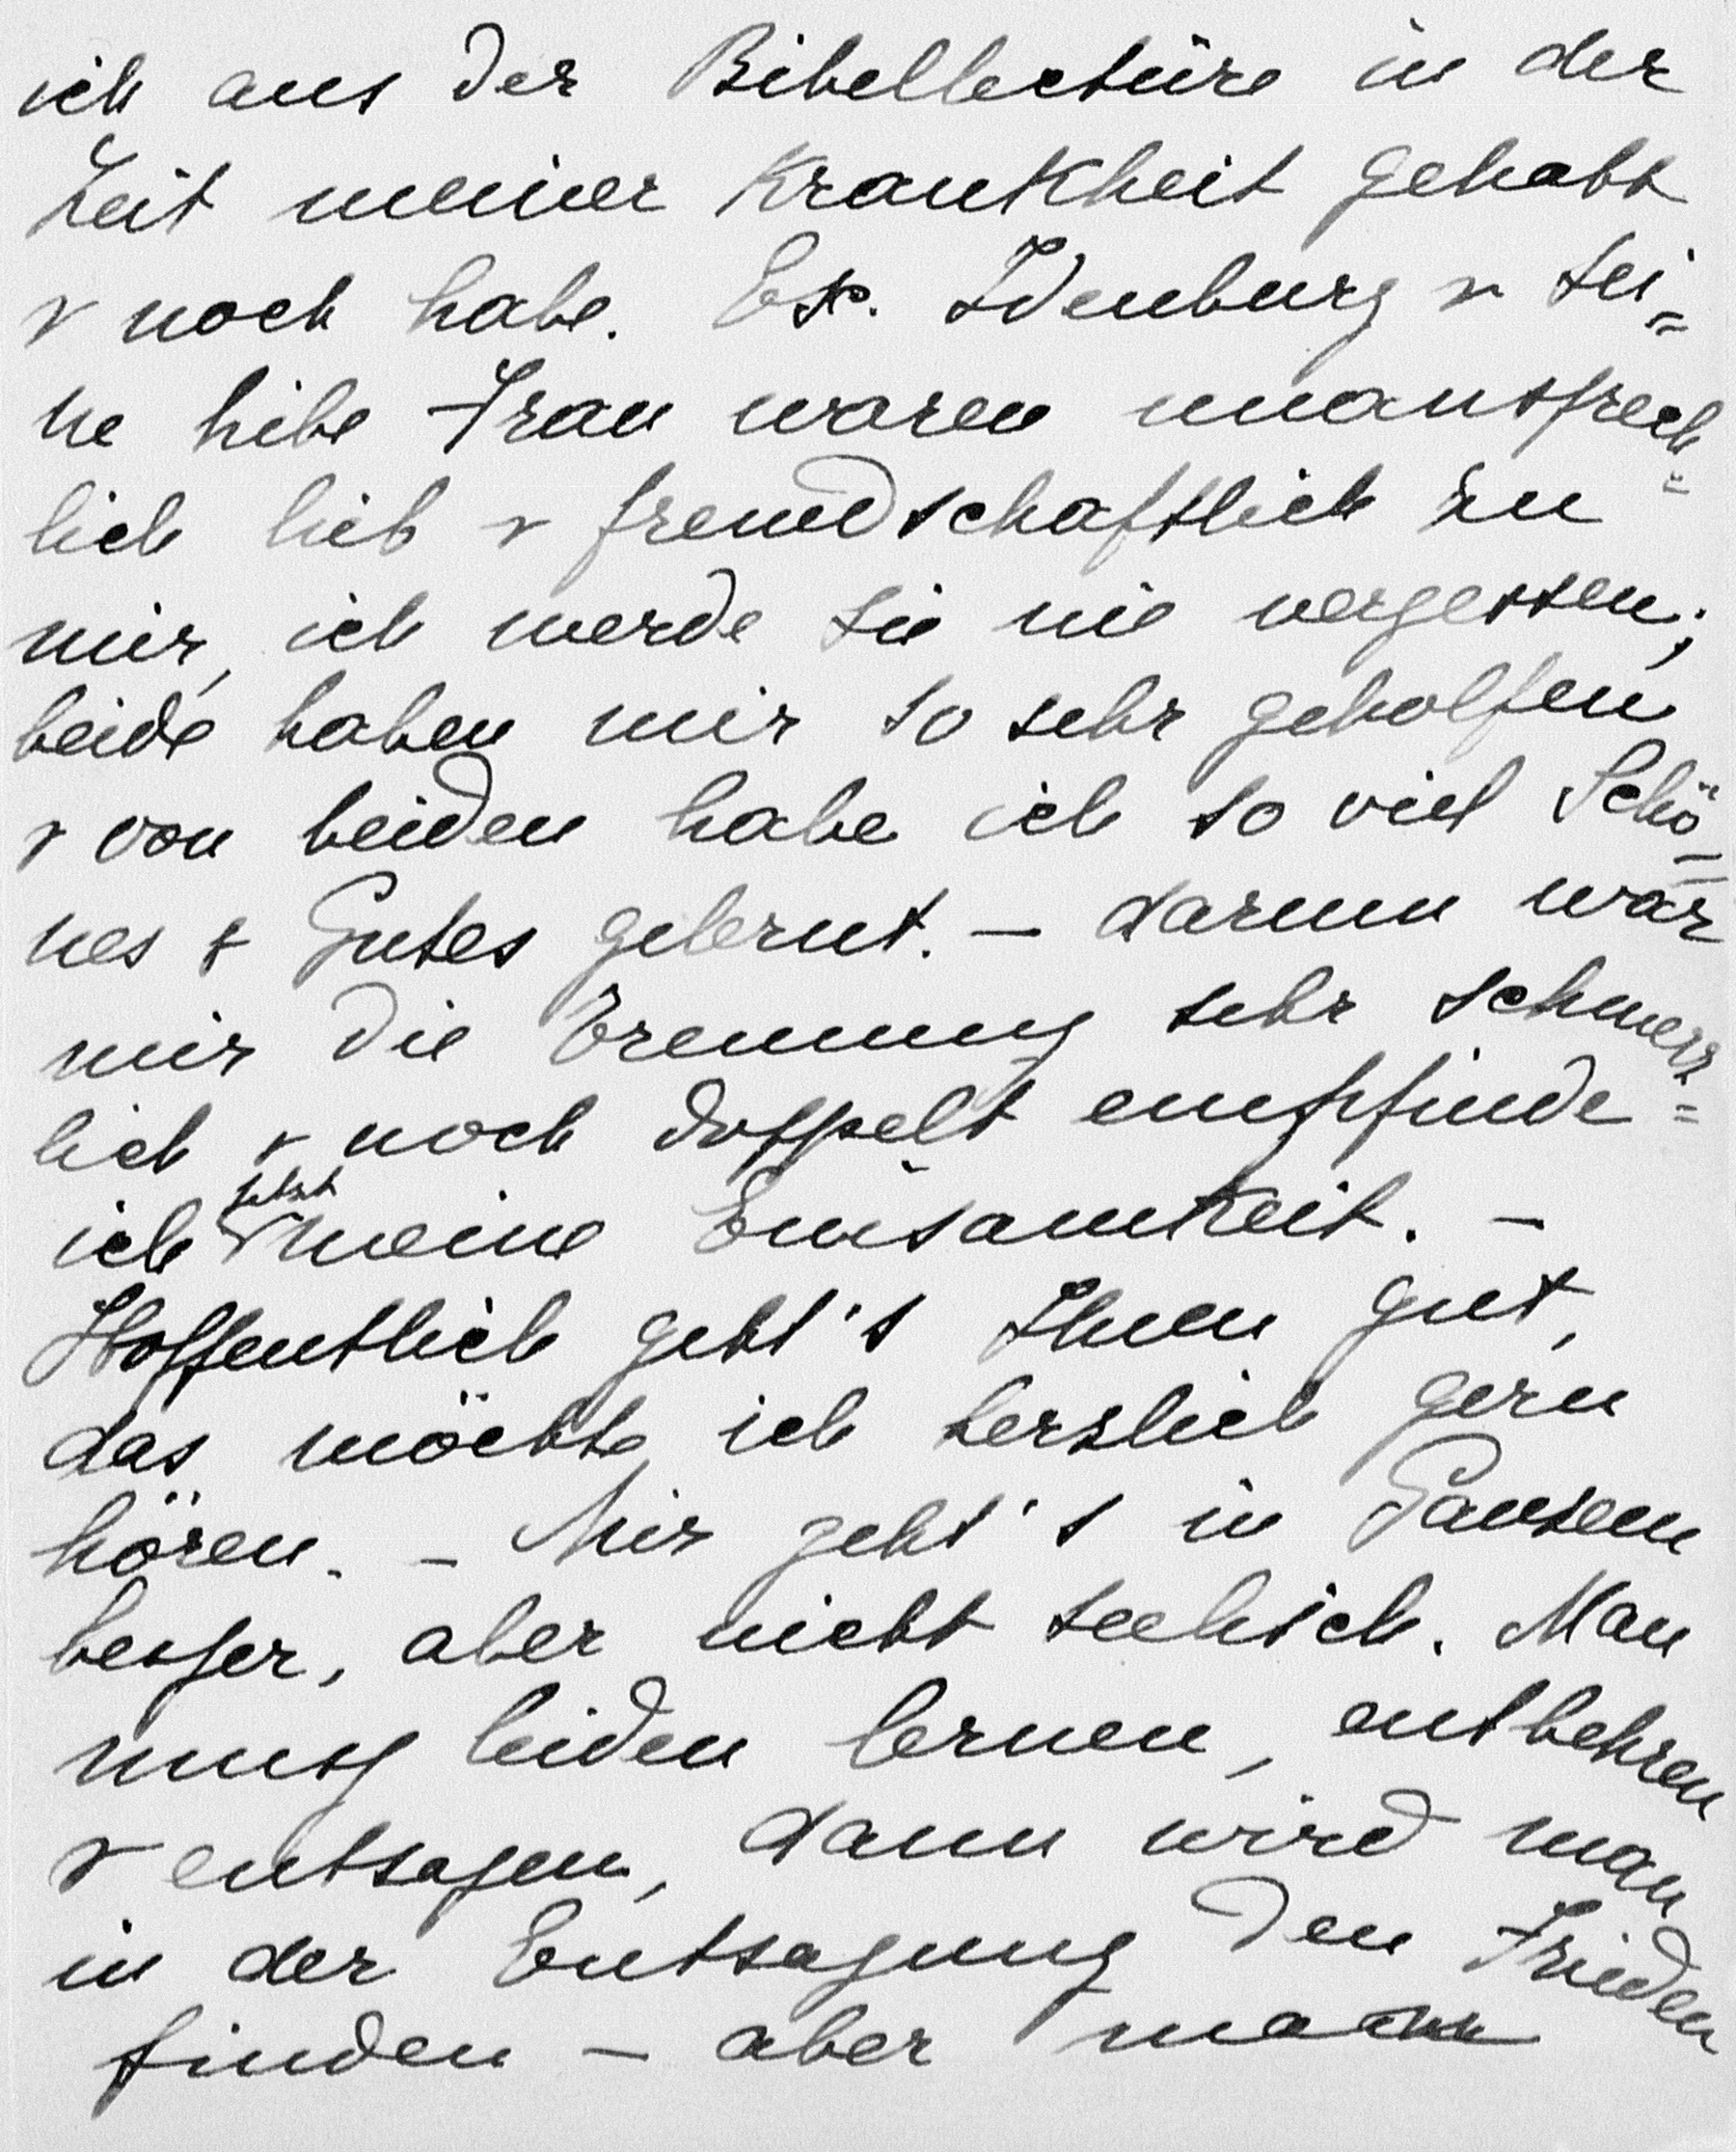 ich aus der Bibellectüre in der
Zeit meiner Krankheit gehabt
& noch habe. Ex. Idenburg & sei=
ne liebe Frau waren unaussprech=
lich lieb & freundschaftlich zu
mir, ich werde sie nie vergessen;
beide haben mir so sehr geholfen
& von beiden habe ich so viel Schö=
nes & Gutes gelernt. — darum war
mir die Trennung sehr schmerz=
lich & noch doppelt empfinde
ich jetzt meine Einsamkeit. —
Hoffentlich geht's Ihnen gut,
das möchte ich herzlich gern
hören. — Mir geht's in Ganzem
besser, aber nicht seelisch. Man
muss leiden lernen, entbehren
& entsagen, dann wird man
in der Entsagung den Frieden
finden — aber